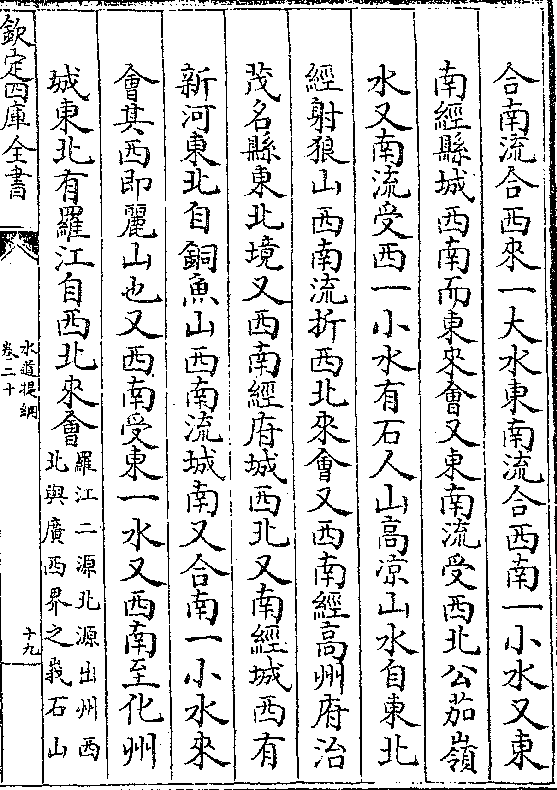 合南流合西來一大水東南流合西南一小水又東
南經縣城西南而東來會又東南流受西北公茄嶺
水又南流受西一小水有石人山高凉山水自東北
經射狼山西南流折西北來會又西南經高州府治
茂名縣東北境又西南經府城西北又南經城西有
新河東北自銅魚山西南流城南又合南一小水來
會其西即麗山也又西南受東一水又西南至化州
城東北有羅江自西北來會羅江二源北源出州西
北與廣西界之峩石山
欽定四庫全書
水道提綱
卷二十
十九